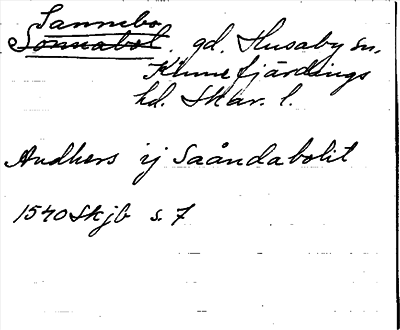 Sannebo
Sonnabol. gd. Husaby sn.
Kinnefjärdings
hd. Skar. l.
Andhers ij Saåndabolit
1540 Skjb s. 7